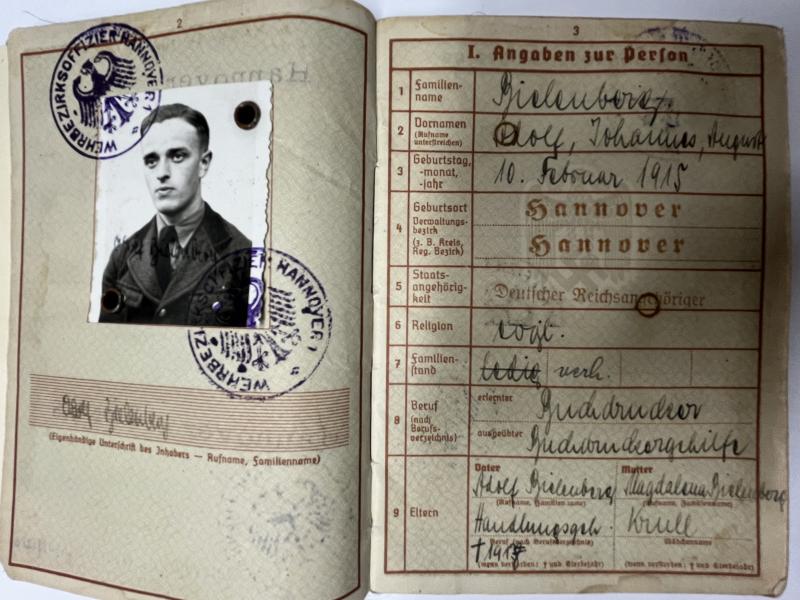 2
WEHRBEZIRKSOFFIZIER HANNOVER I
Hannover
WEHRBEZIRKSOFFIZIER HANNOVER I
Adolf Bielenberg
(Eigenhändige Unterschrift des Inhabers — Rufname, Familienname)
3
I. Angaben zur Person
1 Familienname Bielenberg
2 Vornamen (Rufname unterstreichen) Adolf, Johannes, August
3 Geburtstag, -monat, -jahr 10. Februar 1915
4 Geburtsort Hannover
Verwaltungsbezirk (z. B. Kreis, Reg. Bezirk) Hannover
5 Staatsangehörigkeit Deutscher Reichsangehöriger
6 Religion evgl.
7 Familienstand ledig verh.
8 Beruf (nach Berufsverzeichnis) erlernter Buchdrucker
ausgeübter Buchdruckergehilfe
9 Eltern
Vater Mutter
Adolf Bielenberg Magdalena Bielenberg
(Rufname, Familienname) (Rufname, Familienname)
Handlungsgeh. Krull
Beruf (nach Berufsverzeichnis) Mädchenname
† 1917
(wenn verstorben: † und Sterbejahr) (wenn verstorben: † und Sterbejahr)